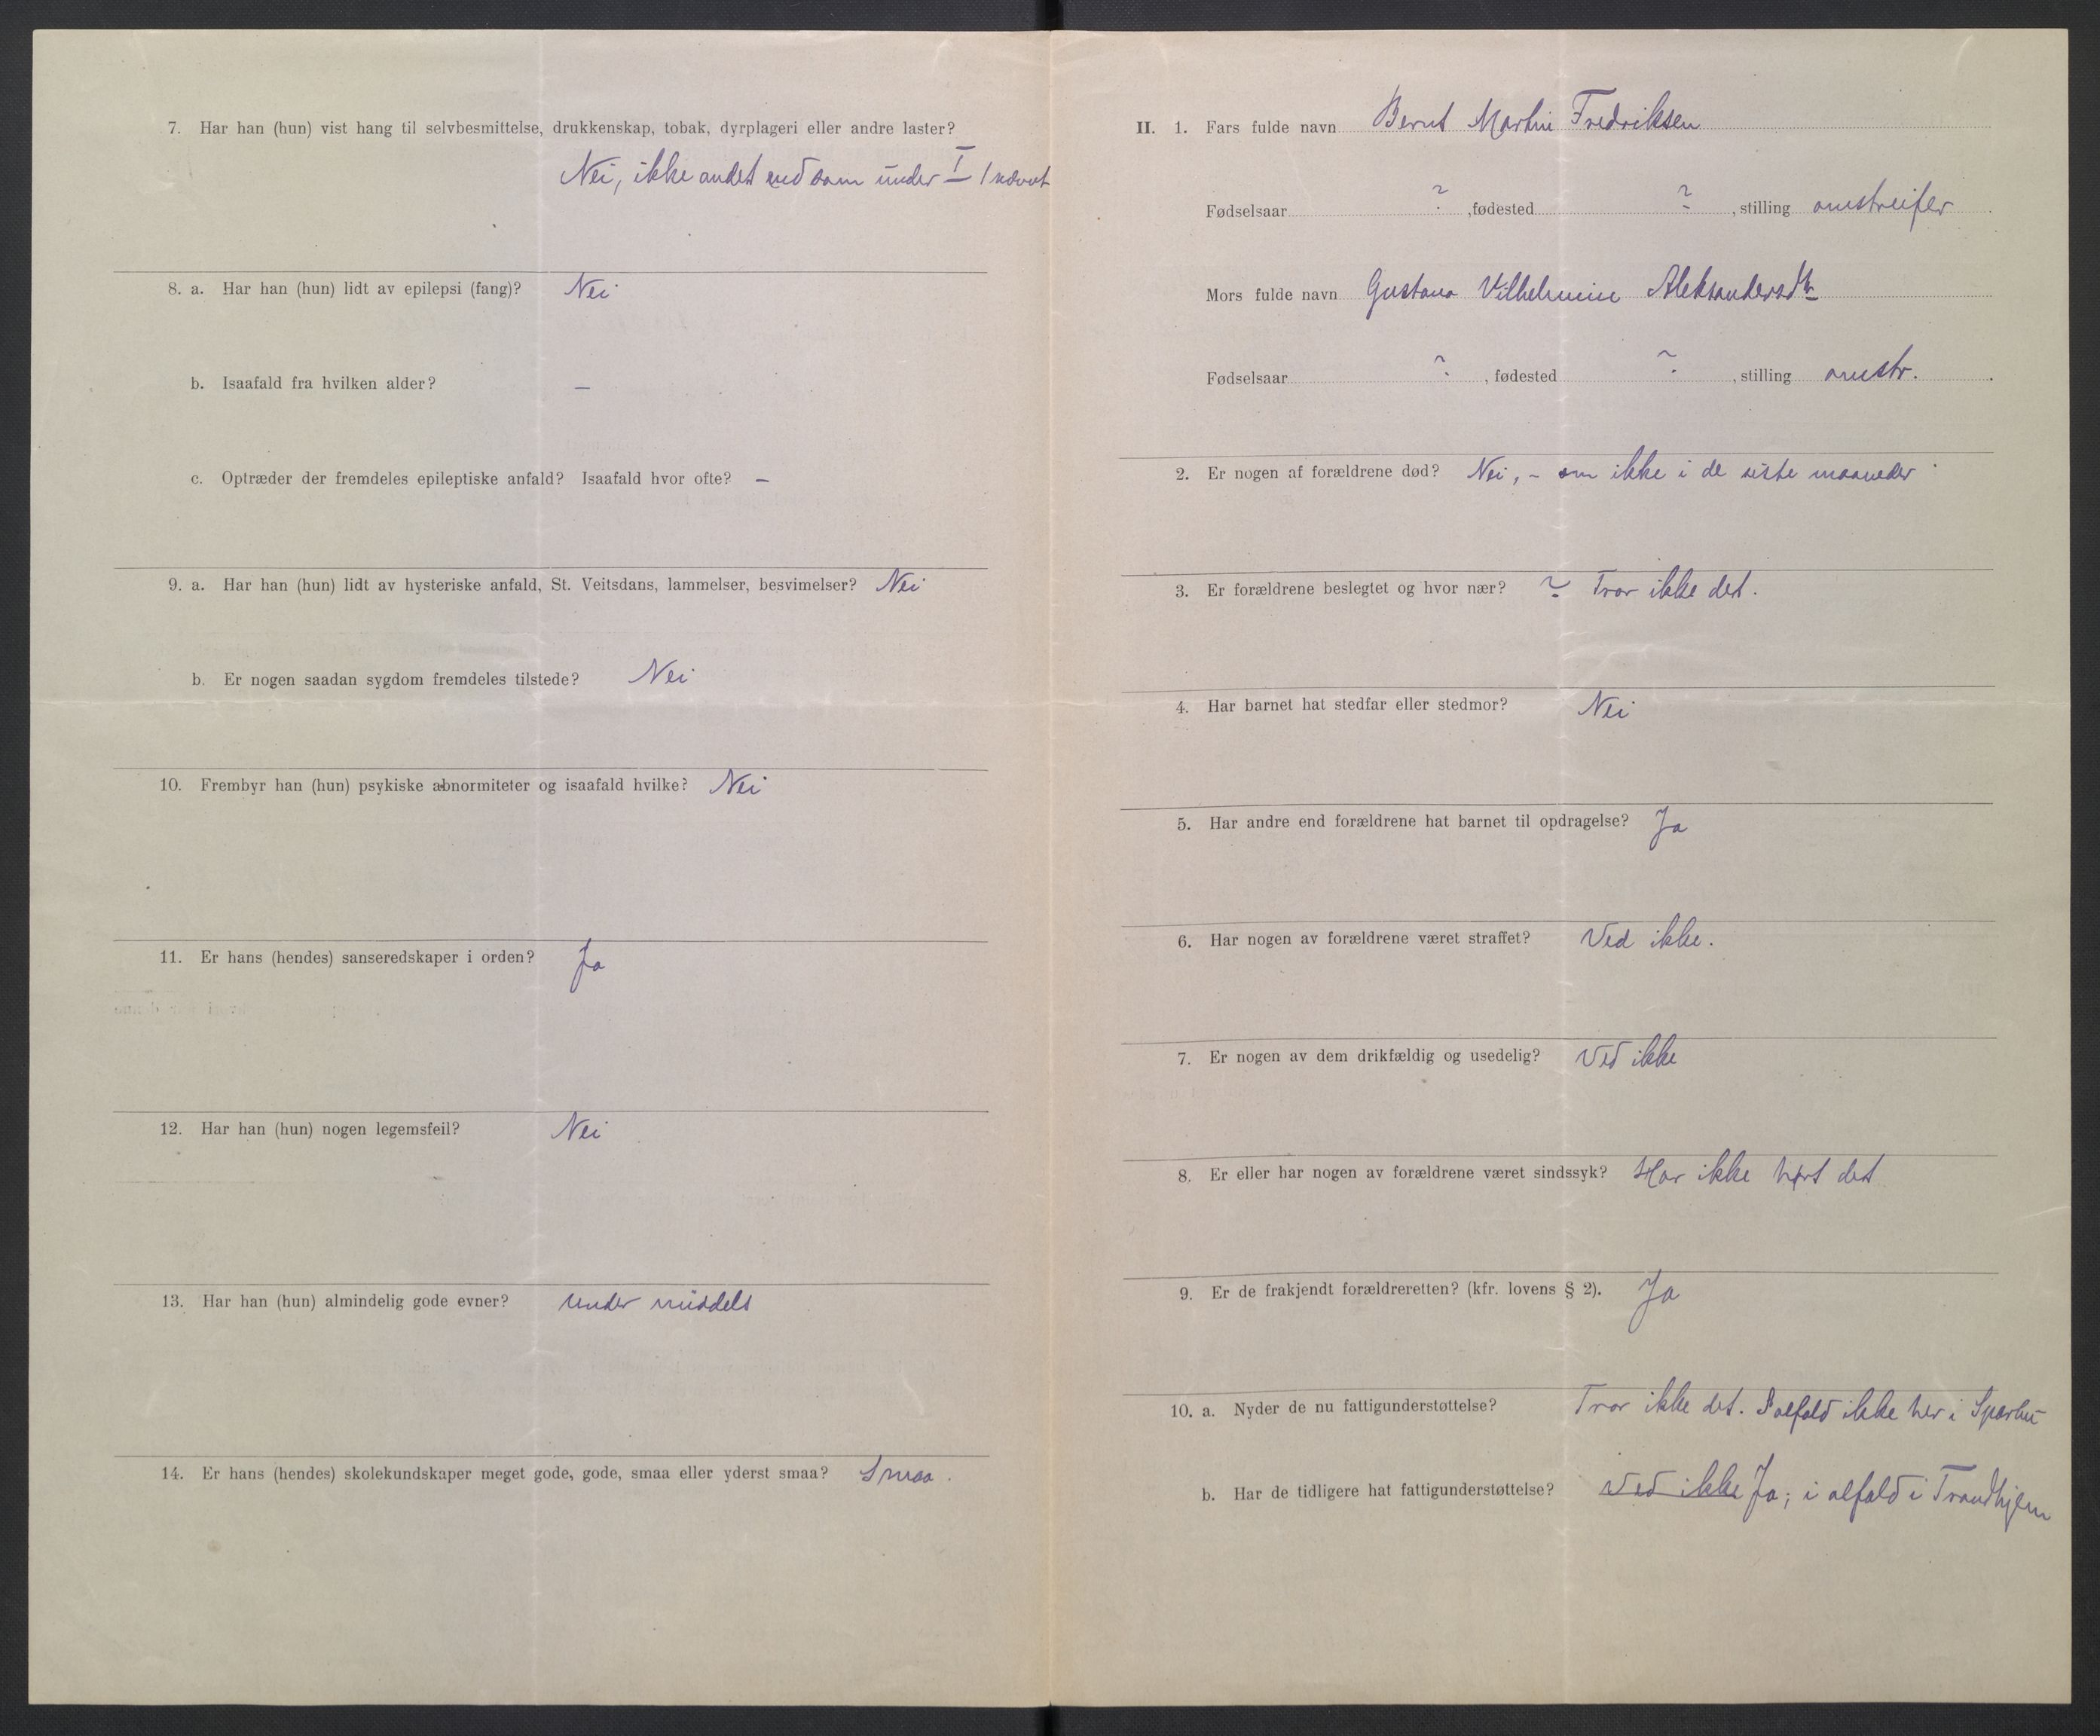 7. Har han (hun) vist hang til selvbesmittelse, drukkenskap, tobak, dyrplageri eller andre laster?
Nei, ikke andet end som under I 1 nævnt
8. a. Har han (hun) lidt av epilepsi (fang)? Nei
b. Isaafald fra hvilken alder? –
c. Optræder der fremdeles epileptiske anfald? Isaafald hvor ofte? –
9. a. Har han (hun) lidt av hysteriske anfald, St. Veitsdans, lammelser, besvimelser? Nei
b. Er nogen saadan sygdom fremdeles tilstede? Nei
10. Frembyr han (hun) psykiske abnormiteter og isaafald hvilke? Nei
11. Er hans (hendes) sanseredskaper i orden? Ja
12. Har han (hun) nogen legemsfeil? Nei
13. Har han (hun) almindelig gode evner? under middels
14. Er hans (hendes) skolekundskaper meget gode, gode, smaa eller yderst smaa? Smaa.
II. 1. Fars fulde navn Bernt Martin Fredriksen
Fødselsaar ? , fødested ? , stilling omstreifer
Mors fulde navn Gustava Vilhelmine Aleksandersdtr
Fødselsaar ? , fødested ? , stilling omstr.
2. Er nogen af forældrene død? Nei, - om ikke i de siste maaneder
3. Er forældrene beslegtet og hvor nær? ? Tror ikke det.
4. Har barnet hat stedfar eller stedmor? Nei
5. Har andre end forældrene hat barnet til opdragelse? Ja
6. Har nogen av forældrene været straffet? Ved ikke.
7. Er nogen av dem drikfældig og usedelig? Ved ikke
8. Er eller har nogen av forældrene været sindssyk? Har ikke hørt det
9. Er de frakjendt forældreretten? (kfr. lovens § 2). Ja
10. a. Nyder de nu fattigunderstøttelse? Tror ikke det. I alfald ikke her i Sparbu
b. Har de tidligere hat fattigunderstøttelse? Ved ikke Ja; i alfald i Trondhjem